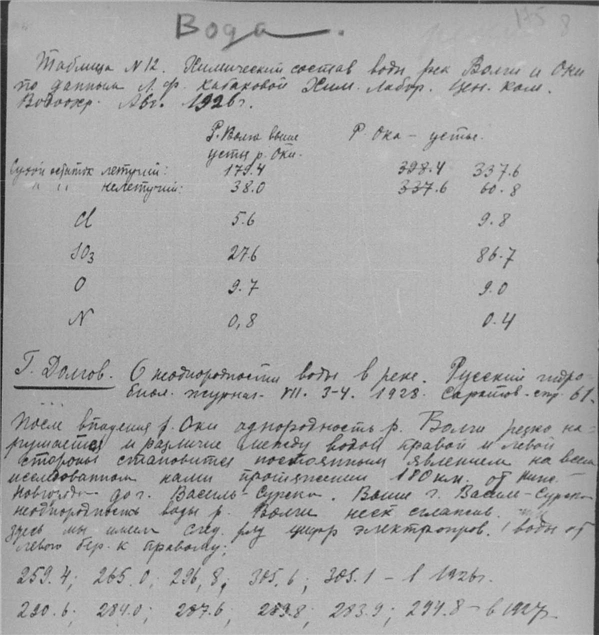 175
8
Вода.
Таблица N 12. Химический состав воды рек Волги и Оки
по данным Л. Ф. Кабаковой Хим. Лабор. Цен. ком.
Водоохр. Авг. 1926 г.
Р. Волга выше устья р. Оки. Р. Ока — устье.
Сухой остаток летучий: 179.4 398.4 337.6
" " нелетучий: 38.0 337.6 60.8
Cl 5.6 9.8
SO3 27.6 86.7
O 9.7 9.0
N 0,8 0.4
Г. Долгов. О неоднородности воды в реке. Русский гидро-
биол. журнал VII. 3-4. 1928. Саратов. стр. 61.
После впадения р. Оки однородность р. Волги резко на-
рушается и различие между водой правой и левой
стороны становится постоянным явлением на всем
исследованном нами протяжении 180 км. от Ниж.
Новгорода до г. Василь-Сурска. Выше г. Васил-Сурска
неоднородность воды р. Волги неск. сглажив.
Здесь мы имеем след. ряд цифр электропров. воды от
левого бер. к правому:
259.4; 265.0; 296,8; 305,6; 305.1 — в 1926 г.
290.6; 284.0; 287.6; 289.8; 283.9; 294.8 — в 1927.